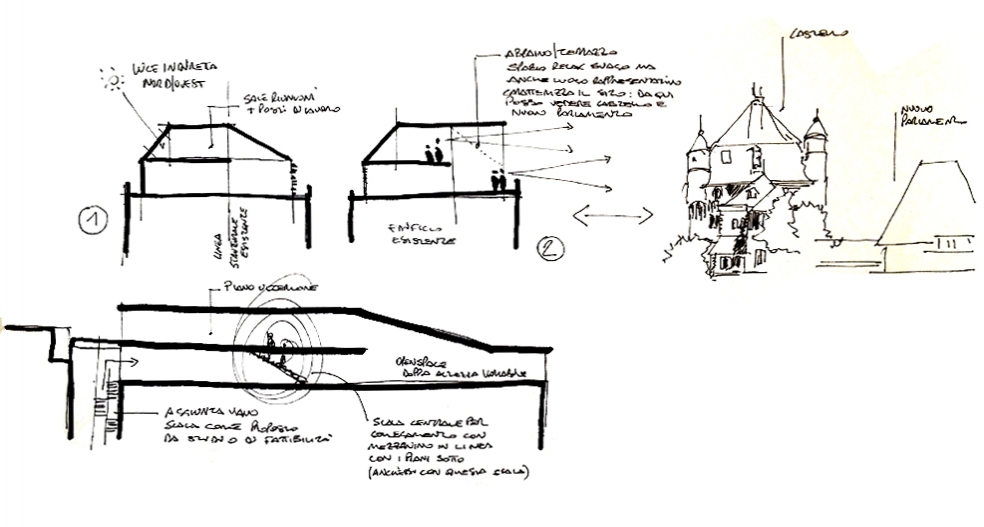 LUCE INDIRETA
NORD/OVEST
SALE RIUNIONI
+ POSTI DI LAVORO
1
LINEA
STRUTTURALE
ESISTENZE
ATTRAVERSO
SPAZIO RELAX SVAGO MA
ANCHE LUOGO RAPPRESENTATIVO
CARATTERIZZA IL SITO: DA QUI
POSSO VEDERE CASTELLO E
NUOVO PARLAMENTO
EDIFICIO
ESISTENZE
2
CASTELLO
NUOVO
PARLAMENTO
PIANO ULTERIORE
OPENSPACE
DOPPIA ALTEZZA VARIABILE
AGGIUNTA VANO
SCALA COME PROPOSTO
DA STUDIO DI FATTIBILITÀ
SCALA CENTRALE PER
COLLEGAMENTO CON
MEZZANINO IN LINEA
CON I PIANI SOTTO
(ANCH'ESSI CON QUESTA SCALA)